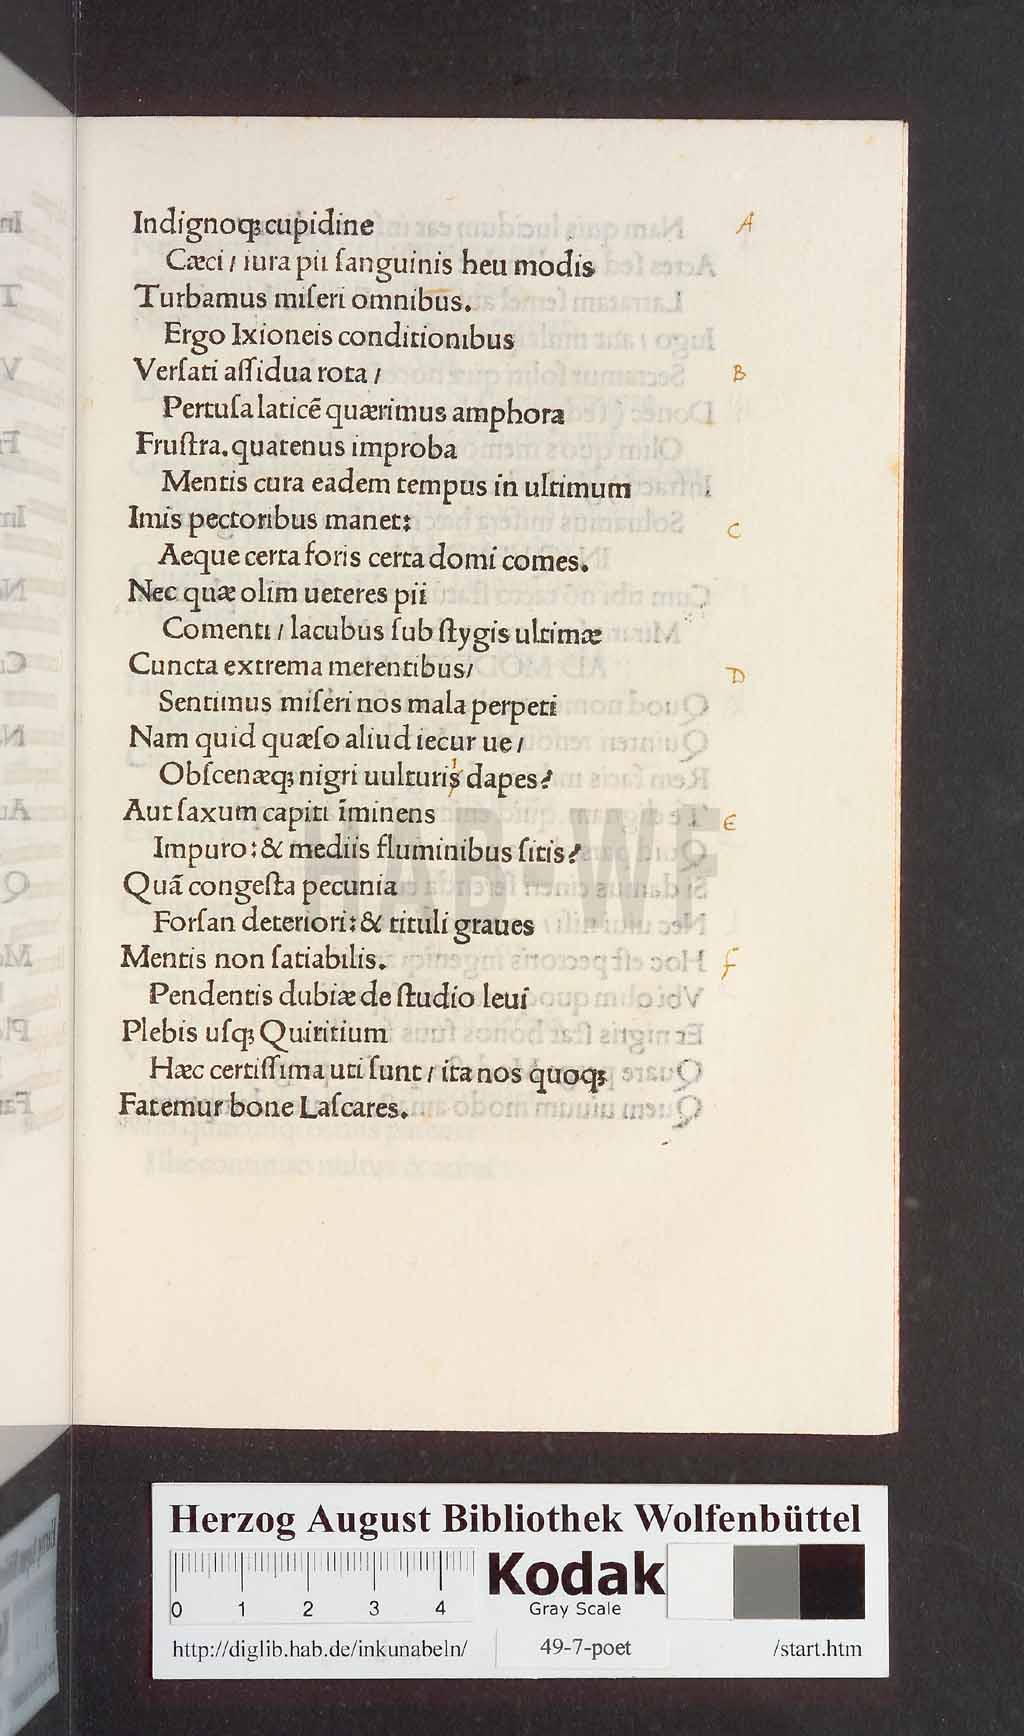 Indignoqꝫ cupidine A
Cæci / iura pii ſanguinis heu modis
Turbamus miſeri omnibus.
Ergo Ixioneis conditionibus
Verſati aſſidua rota / B
Pertuſa laticē quærimus amphora
Fruſtra. quatenus improba
Mentis cura eadem tempus in ultimum
Imis pectoribus manet: C
Aeque certa foris certa domi comes.
Nec quæ olim ueteres pii
Comenti / lacubus ſub ſtygis ultimæ
Cuncta extrema merentibus / D
Sentimus miſeri nos mala perpeti
Nam quid quæſo aliud iecur ue /
Obſcenæqꝫ nigri uulturis dapes?
Aut ſaxum capiti īminens E
Impuro: & mediis fluminibus ſitis?
Quā congeſta pecunia
Forſan deteriori: & tituli graues
Mentis non ſatiabilis. F
Pendentis dubiæ de ſtudio leui
Plebis uſqꝫ Quiritium
Hæc certiſſima uti ſunt / ita nos quoqꝫ
Fatemur bone Laſcares.
HAB-WF
Herzog August Bibliothek Wolfenbüttel
0 1 2 3 4
Kodak
Gray Scale
http://diglib.hab.de/inkunabeln/ 49-7-poet /start.htm